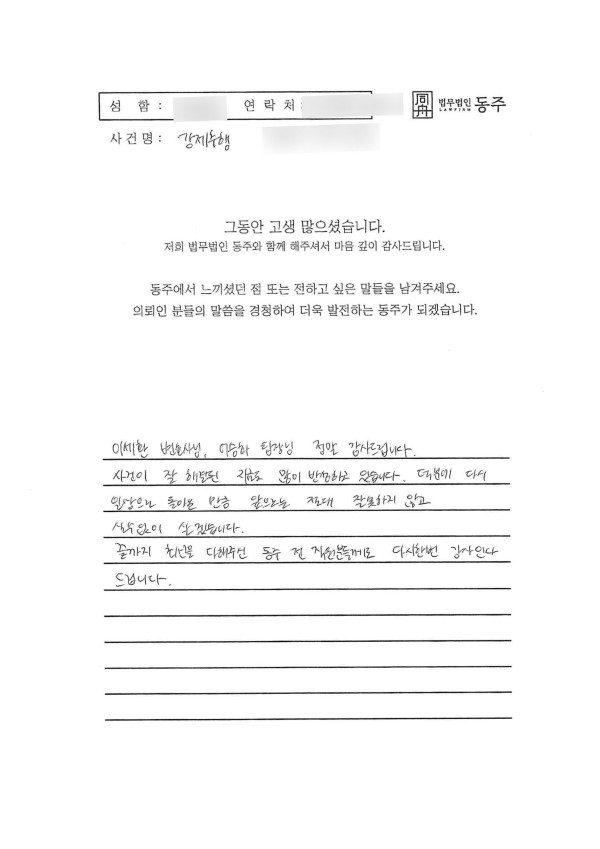 성 함 : 연 락 처 : 同舟 법무법인 동주
LAWFIRM
사 건 명 : 강제추행
그동안 고생 많으셨습니다.
저희 법무법인 동주와 함께 해주셔서 마음 깊이 감사드립니다.
동주에서 느끼셨던 점 또는 전하고 싶은 말들을 남겨주세요.
의뢰인 분들의 말씀을 경청하여 더욱 발전하는 동주가 되겠습니다.
이세환 변호사님, 이승하 팀장님 정말 감사드립니다.
사건이 잘 해결된 지금도 많이 반성하고 있습니다. 덕분에 다시
일상으로 돌아온 만큼 앞으로는 절대 잘못하지 않고
실수없이 살겠습니다.
끝까지 최선을 다해주신 동주 전 직원분들께도 다시한번 감사인사
드립니다.